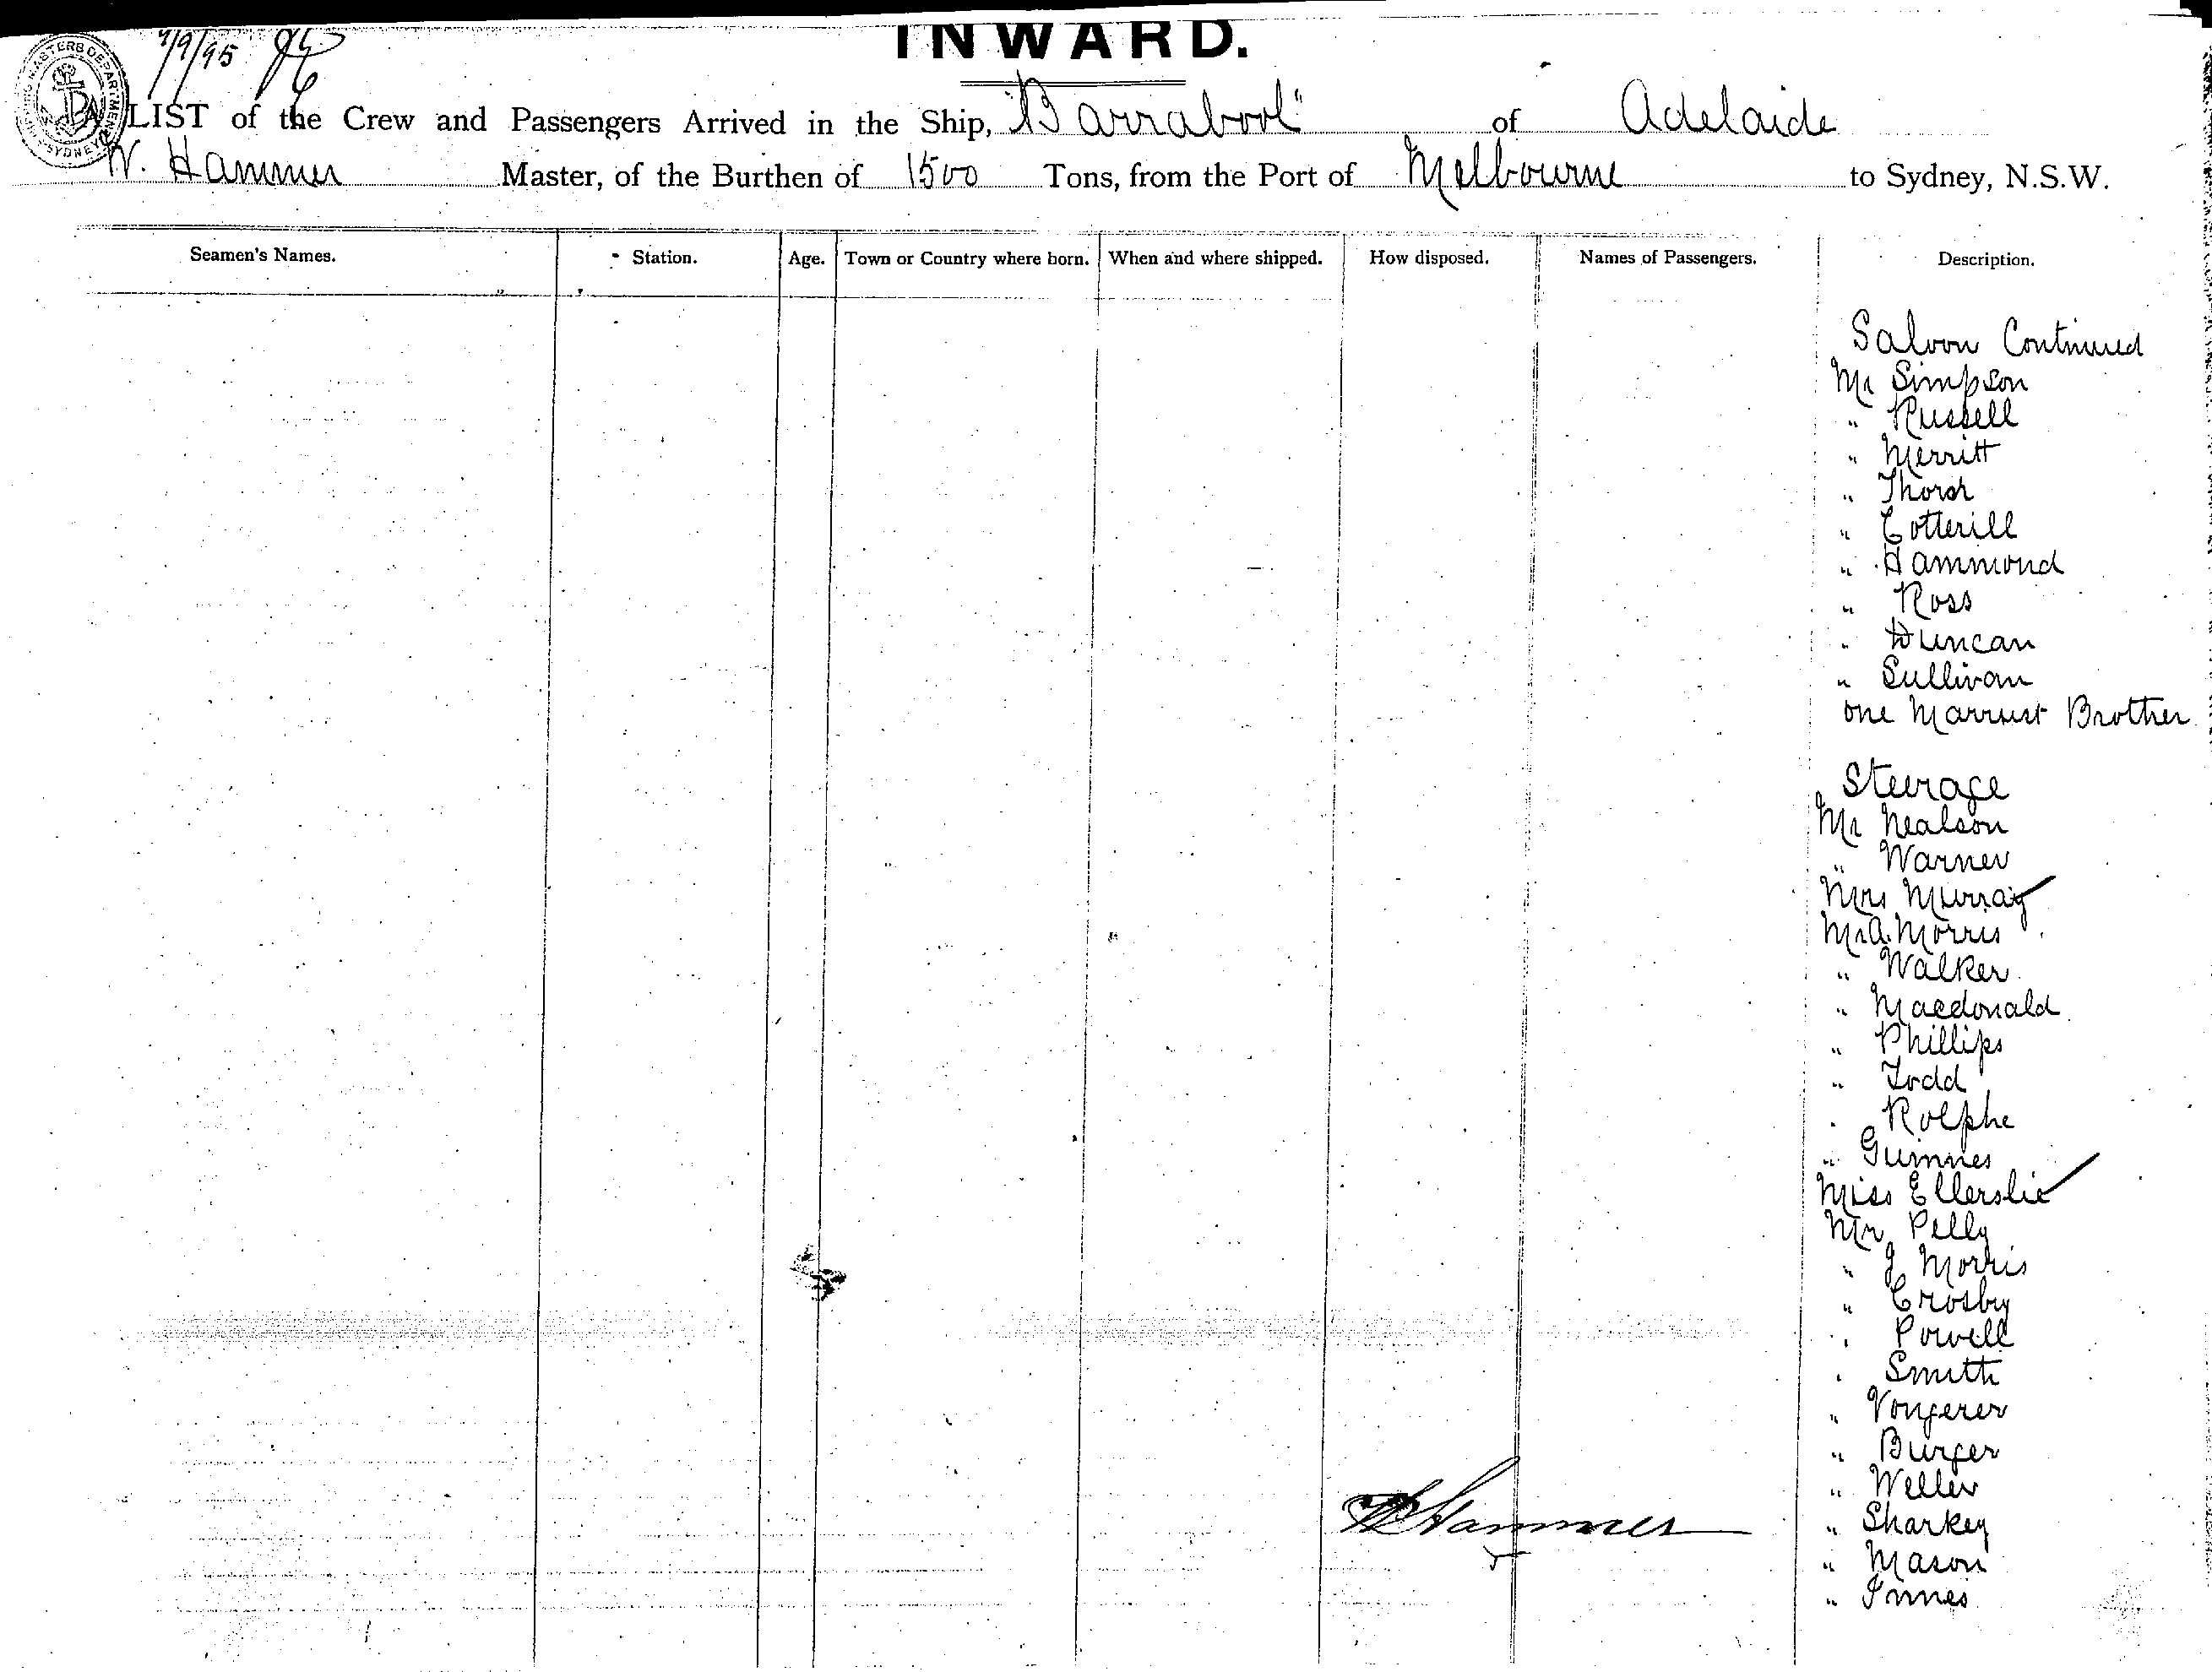 INWARD.
9/9/95
SHIPPING MASTERS DEPARTMENT SYDNEY
A LIST of the Crew and Passengers Arrived in the Ship, "Barrabool" of Adelaide
W. Hammer Master, of the Burthen of 1500 Tons, from the Port of Melbourne to Sydney, N.S.W.
Seamen's Names. Station. Age. Town or Country where born. When and where shipped. How disposed. Names of Passengers. Description.
Saloon Continued
Mr Simpson
" Russell
" Merritt
" 
" Cotterill
" Hammond
" Ross
" Duncan
" Sullivan
one Marrist Brother
Steerage
Mr Nealson
" Warner
Mrs Murray
Mr A. Morris
" Walker
" Macdonald
" Phillips
" Todd
" Rolphe
" Guinnes
Miss Ellerslie
Mr Pelly
" J Morris
" Crosby
" Powell
" Smith
" Vongerer
" Burger
" Weller
" Sharkey
" Mason
" Innes
W Hammer